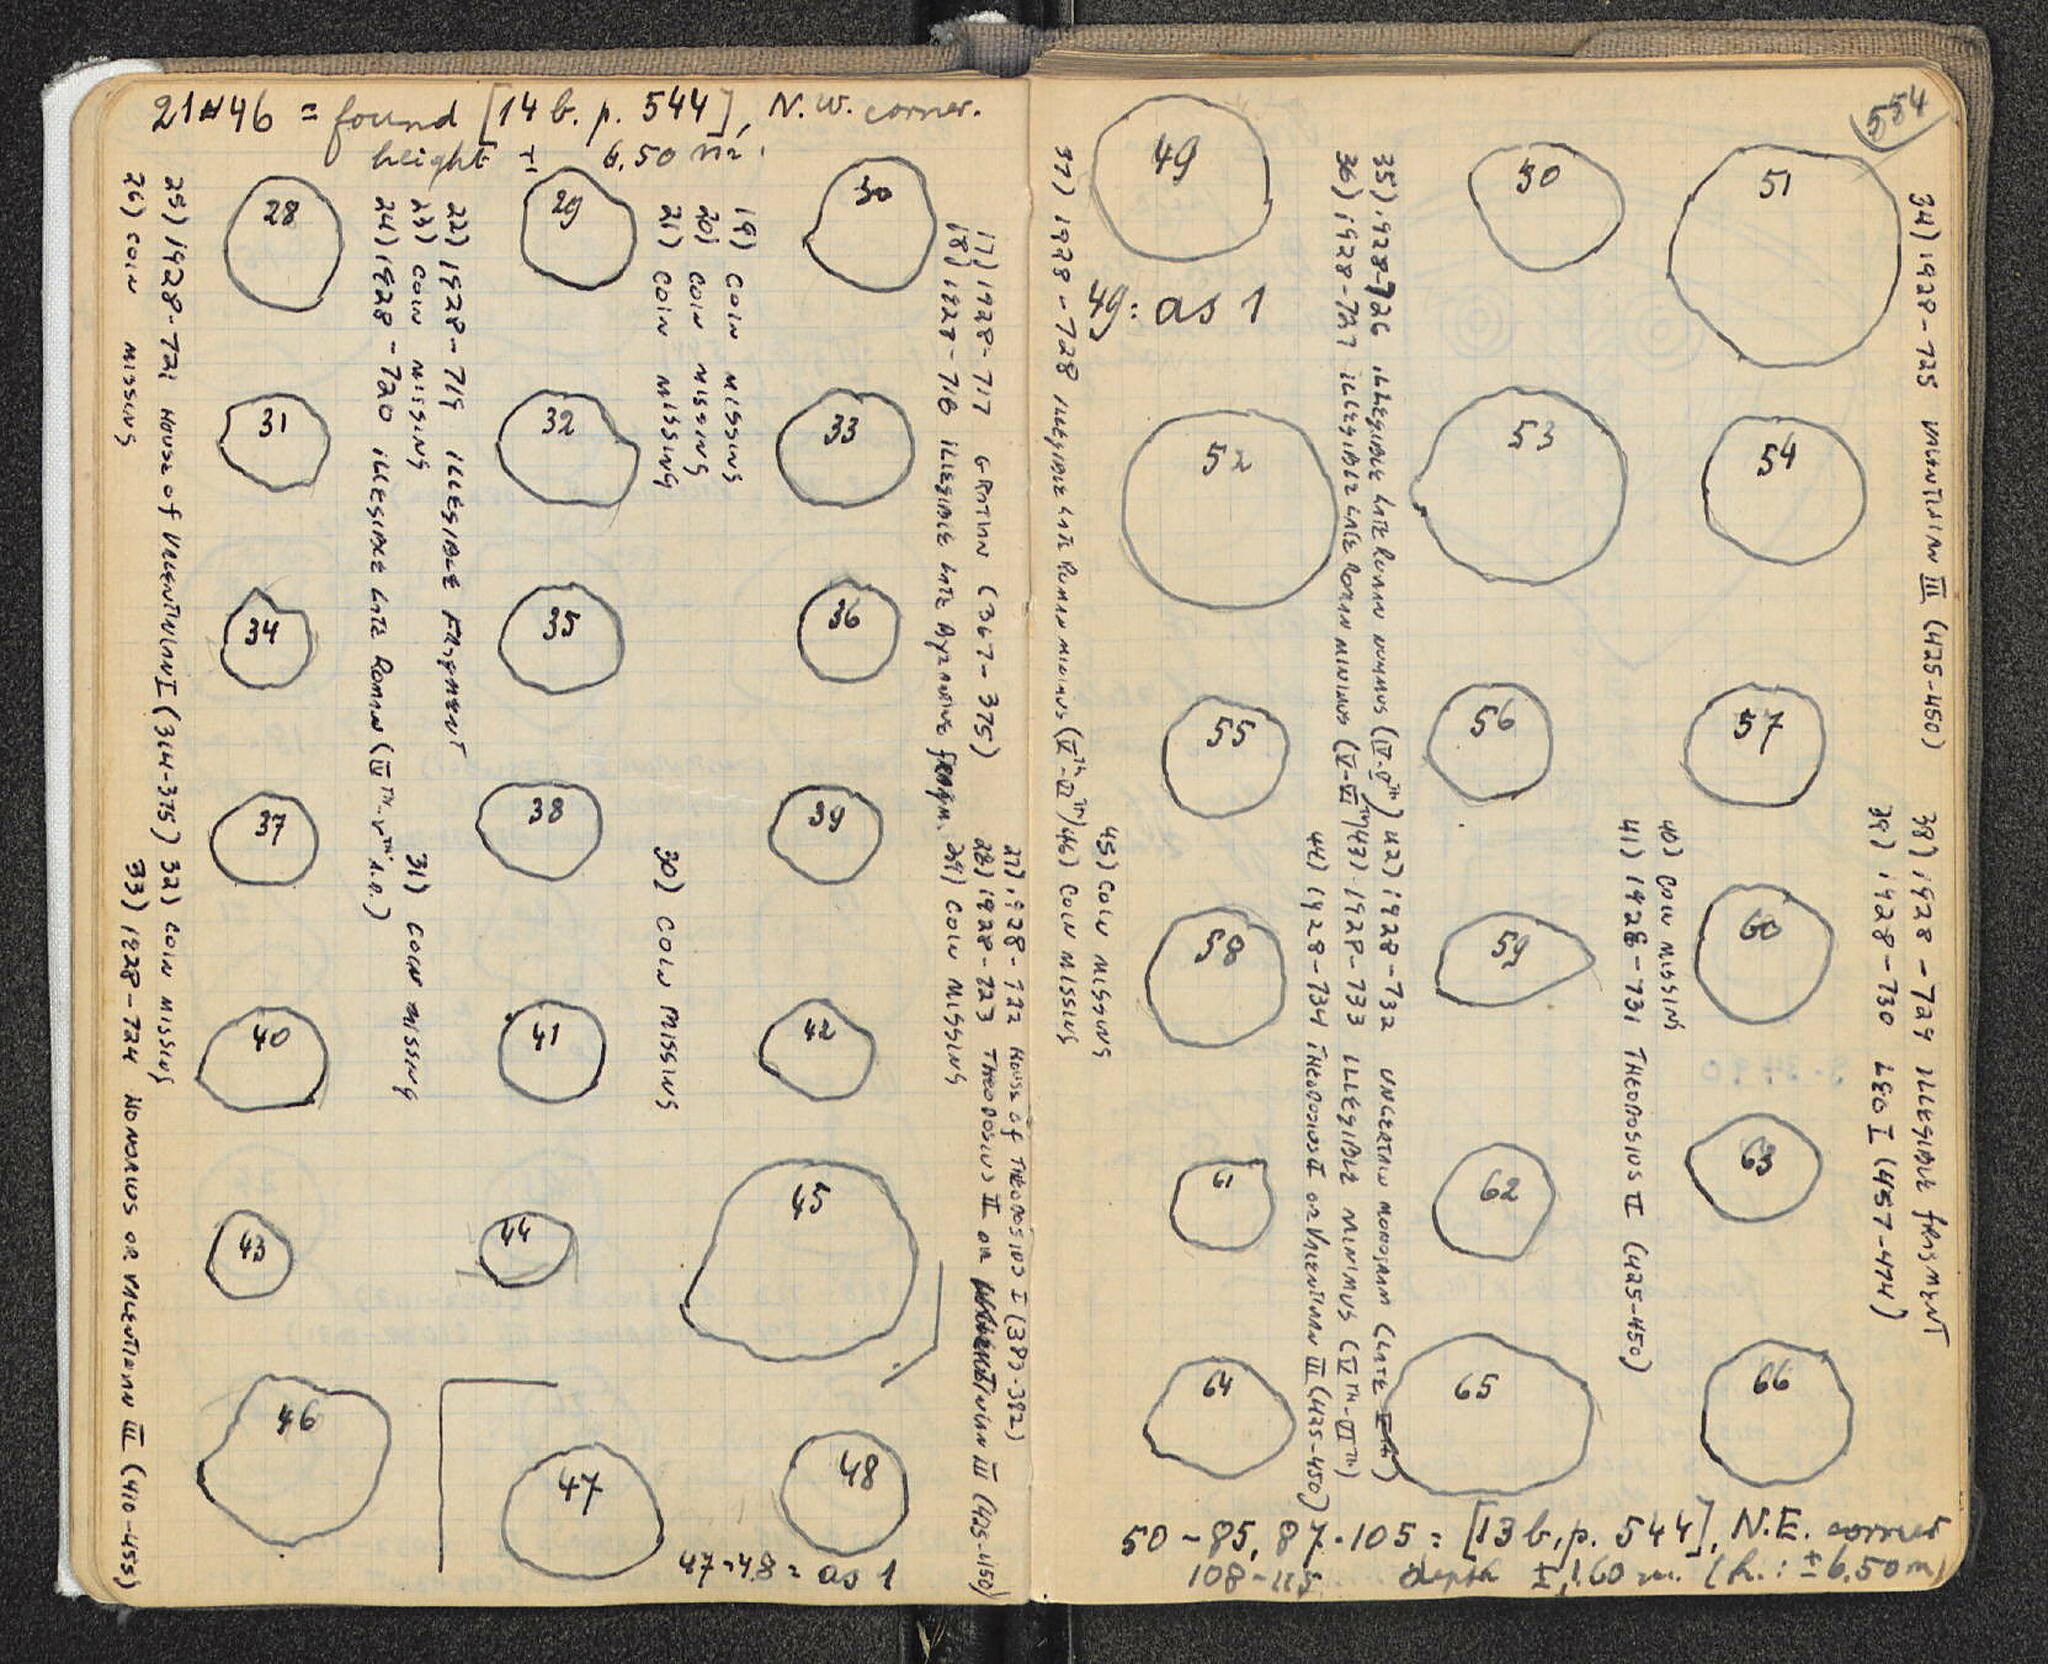 21-46 = found [14 b. p. 544], N.W. corner.
height ± 6.50 m.
28
29
30
31
32
33
34
35
36
37
38
39
40
41
42
43
44
45
46
47
48
47-48 = as 1
17) 1928-717 GRATIAN (367-375)
18) 1928-718 ILLEGIBLE LATE BYZANTINE
19) COIN MISSING
20) COIN MISSING
21) COIN MISSING
22) 1928-719 ILLEGIBLE FRAGMENT
23) COIN MISSING
24) 1928-720 ILLEGIBLE LATE ROMAN (IV TH-V TH A.D.)
25) 1928-721 HOUSE OF VALENTINIAN I (364-375)
26) COIN MISSING
27) 1928-722 HOUSE OF THEODOSIUS I (383-392)
28) 1928-723 THEODOSIUS II OR VALENTINIAN III (425-450)
29) COIN MISSING
30) COIN MISSING
31) COIN MISSING
32) COIN MISSING
33) 1928-724 HONORIUS OR VALENTINIAN III (410-455)
554
49
50
51
49: as 1
52
53
54
55
56
57
58
59
60
61
62
63
64
65
66
34) 1928-725 VALENTINIAN III (425-450)
35) 1928-726 ILLEGIBLE LATE ROMAN NUMMUS (IV-V TH)
36) 1928-727 ILLEGIBLE LATE ROMAN MINIMUS (V-VI TH)
37) 1928-728 ILLEGIBLE LATE ROMAN MINIMUS (V TH-VI TH)
38) 1928-729 ILLEGIBLE FRAGMENT
39) 1928-730 LEO I (457-474)
40) COIN MISSING
41) 1928-731 THEODOSIUS II (425-450)
42) 1928-732 UNCERTAIN MONOGRAM (LATE
43) 1928-733 ILLEGIBLE MINIMUS (V TH-VI TH)
44) 1928-734 THEODOSIUS II OR VALENTINIAN III (425-450)
45) COIN MISSING
46) COIN MISSING
50-85, 87-105 = [13 b. p. 544], N.E. corner
108-115 depth ± 1.60 m. (h.: ± 6.50 m)